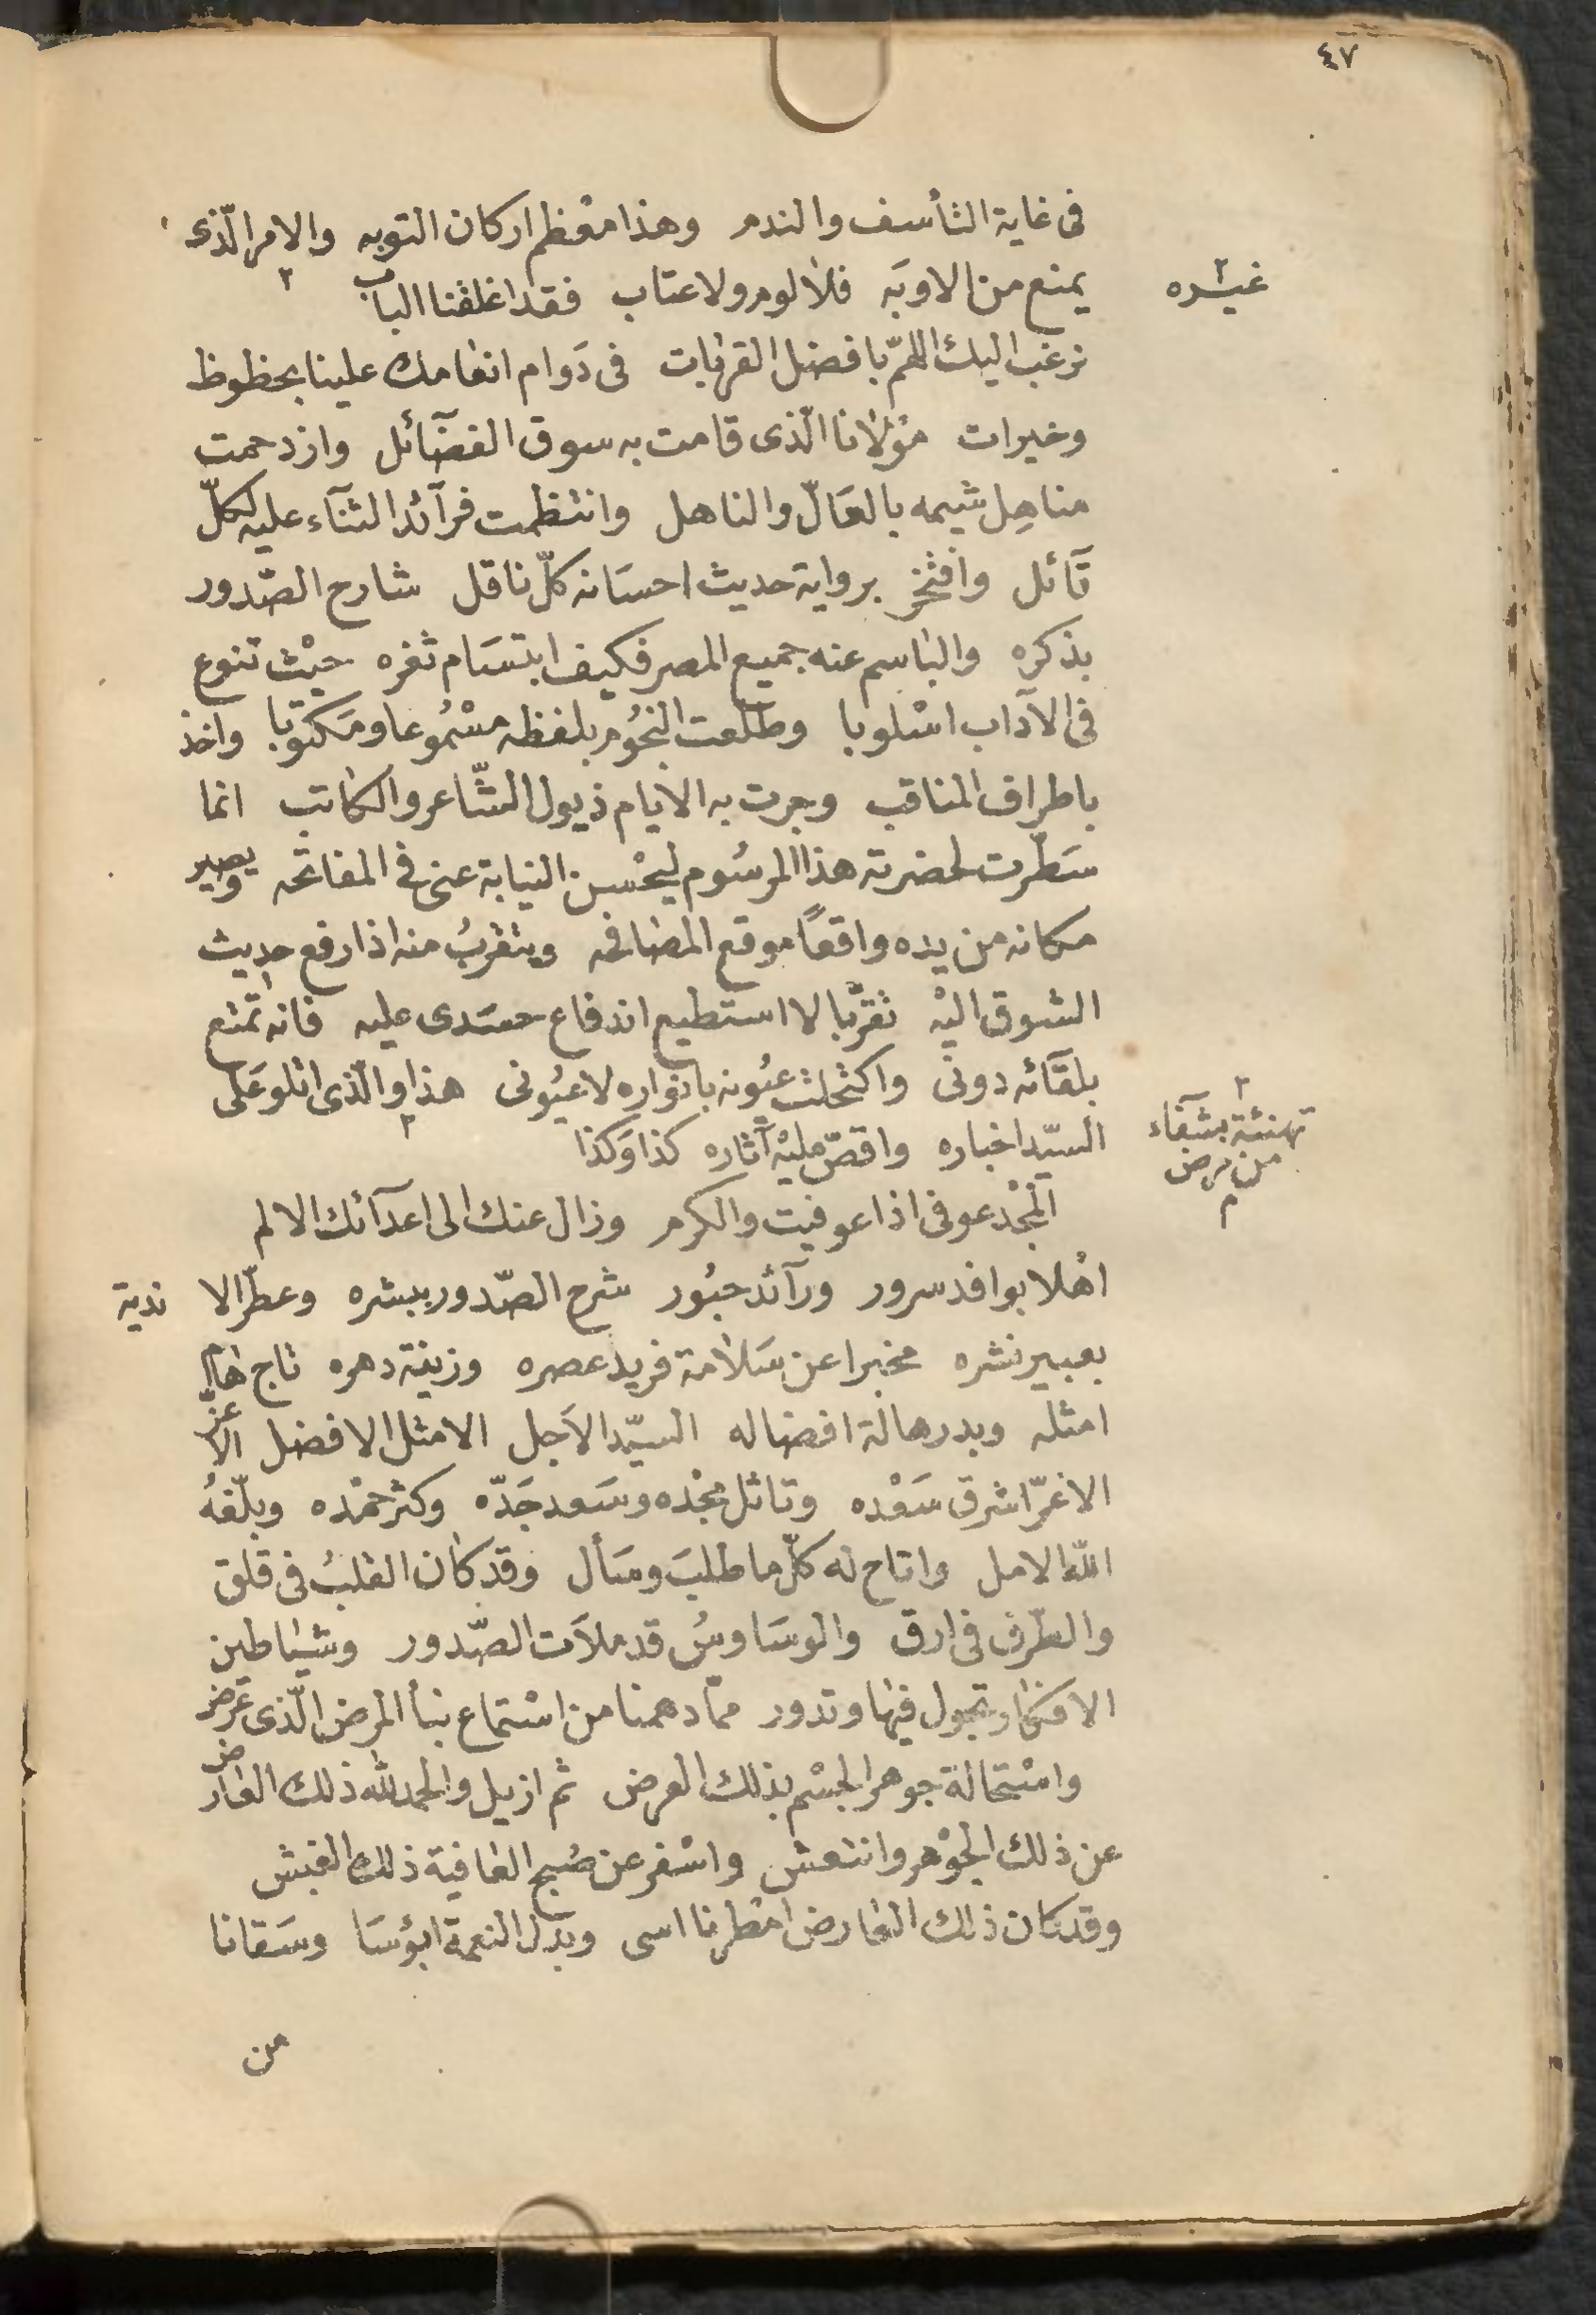 ٤٧
فى غاية التأسف والندم وهذا معظم اركان التوبه والامر الّذى
يمنع من الاوبَه فلا لوم ولا عتاب فقد اغلقنا الباب
غيره
نرغب اليك اللهمّ بافضل القربات فى دَوام انعامك علينا بحظوظ
وخيرات مَوْلانا الّذى قامت به سوق الفضآئل وازدحمت
مناهِل شيمه بالعَالّ والناهل وانتظمت فرآئد الثنآء عليه لكلّ
قآئل وافتخر برواية حديث احسَانه كلّ ناقل شارح الصّدور
بذكره والباسم عنه جميع المصر فكيف ابتسَام ثغره حيْث تنوع
فى الآداب اسْلوبا وطلعت النجُوم بلفظه مسْمُوعا ومَكتوبا واخذ
باطراف المناقب وجرت به الايام ذيول الشّاعر والكاتب انما
سَطّرت لحضرته هذا المرسُوم ليحْسن النيابة عنى فى المفاتحه ويصير
مكانه من يده واقعاً موقع المصافحه ويتقربُ منه اذا رفع حديث
الشوق اليْه تقرّبا لا استطيع اندفاع حسَدى عليه فانه تمتع
بلقآئه دونى واكتحلت عيُونه بانواره لا عيُونى هذا والّذى اتلو عَلى
السيّد اخباره واقصّ عليْه آثاره كذا وَكذا
تهنئة بشفآء
من مرض
المجْد عوفى اذا عوفيت والكرم وزال عنك الى اعدآئك الالم
اهْلا بوافد سرور ورآئد حبُور شرح الصّدور ببشره وعطّر الا ندية
بعبير نشره مخبرا عن سَلامة فريد عصره وزينة دهره تاج هام
امثله وبدر هالة افضاله السيّد الاَجل الامثل الافضل الاعزّ
الاغرّ اشرق سَعْده وتاثل مجْده وسَعد جَدّه وكثر حمْده وبلّغهُ
اللّه الامل واتاح له كلّ ما طلبَ وسَأل وقد كان القلبُ فى قلق
والطّرف فى ارق والوسَاوسُ قد ملاَت الصّدور وشياطين
الافكار تجول فيها وتدور ممّا دهمنا من اسْتماع نبأ المرض الّذى عرض
واسْتحالة جوهر الجسْم بذلك العرض ثم ازيل والحمد للّه ذلك العارض
عن ذلك الجوْهر وانتعش واسْفر عن صُبح العافية ذلك الغبش
وقد كان ذلك العارض امْطرنا اسى وبدّل النعمة ابؤسَا وسَقانا
من